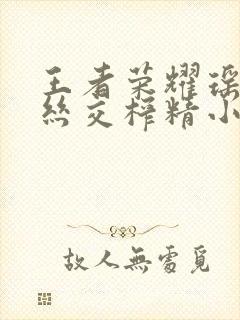 王者荣耀瑶
丝交榨精小
故人無處覓